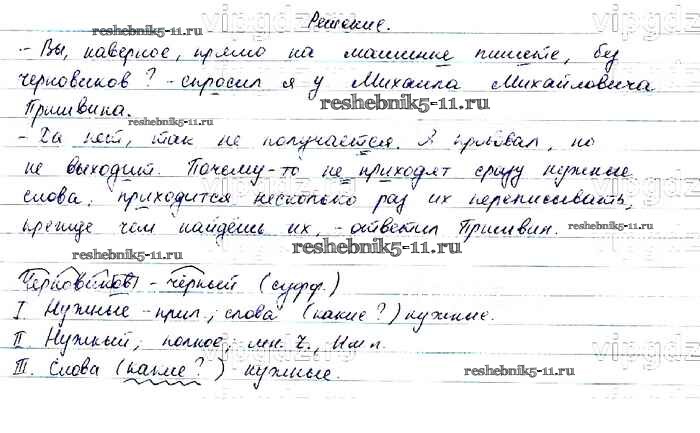 Решение.
- Вы, наверное, прямо на машинке пишете, без
черновиков? - спросил я у Михаила Михайловича
Пришвина.
- Да нет, так не получается. Я пробовал, но
не выходит. Почему-то не приходят сразу нужные
слова, приходится несколько раз их переписывать,
прежде чем найдёшь их, - ответил Пришвин.
Черновиков - чёрный (суфф.)
I. Нужные - прил.; слова (какие?) нужные.
II. Нужный; полное; мн. ч., Им п.
III. Слова (какие?) нужные.
reshebnik5-11.ru
reshebnik5-11.ru
reshebnik5-11.ru
reshebnik5-11.ru
reshebnik5-11.ru
reshebnik5-11.ru
reshebnik5-11.ru